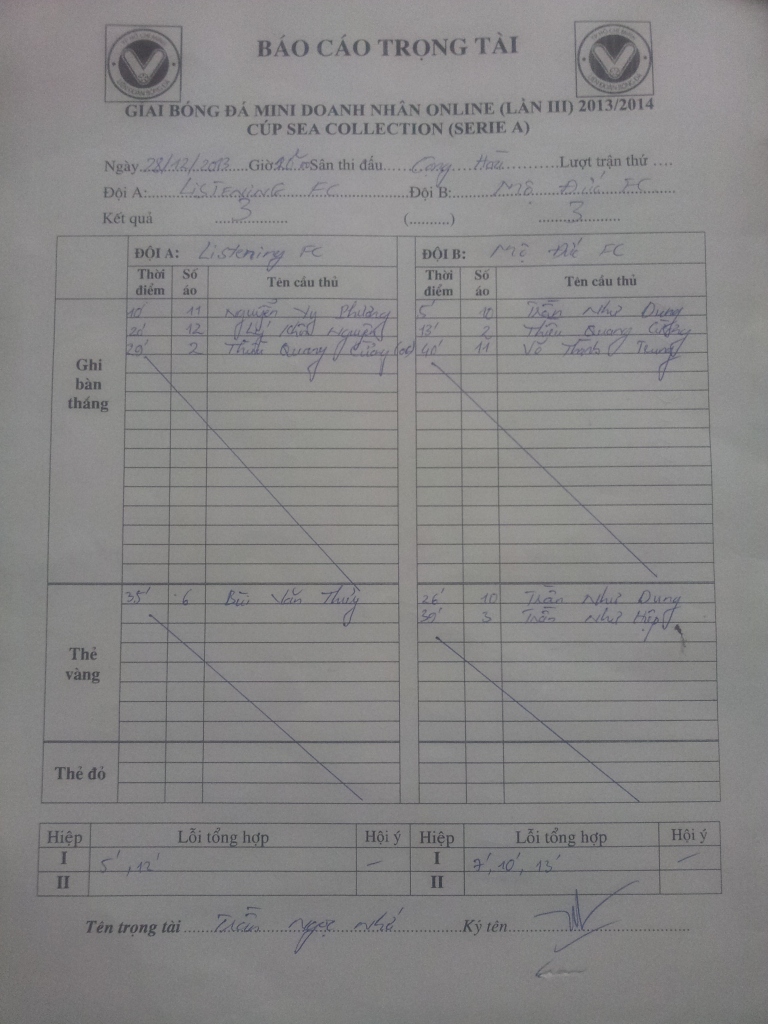 BÁO CÁO TRỌNG TÀI
GIẢI BÓNG ĐÁ MINI DOANH NHÂN ONLINE (LẦN III) 2013/2014
CÚP SEA COLLECTION (SERIE A)
Ngày 28/12/2013 Giờ Sân thi đấu Cộng Hòa Lượt trận thứ ....
Đội A: LISTENING FC Đội B: Mộ Đức FC
Kết quả 3 (..........) 3
ĐỘI A: Listening FC ĐỘI B: Mộ Đức FC
Thời điểm Số áo Tên cầu thủ Thời điểm Số áo Tên cầu thủ
Ghi bàn thắng
10' 11 Nguyễn Vy Phương 5' 10 Trần Như Dung
20' 12 Lý Khôi Nguyên 13' 2 Thiều Quang Cường
29' 2 Thiều Quang Cường 40' 11 Võ Thịnh Trung
Thẻ vàng
35' 6 Bùi Văn Thủy 26' 10 Trần Như Dung
3 Trần Như Hiệp
Thẻ đỏ
Hiệp Lỗi tổng hợp Hội ý Hiệp Lỗi tổng hợp Hội ý
I 5', 12' – I 7', 10', 13' –
II II
Tên trọng tài Trần Ngọc Nhớ Ký tên